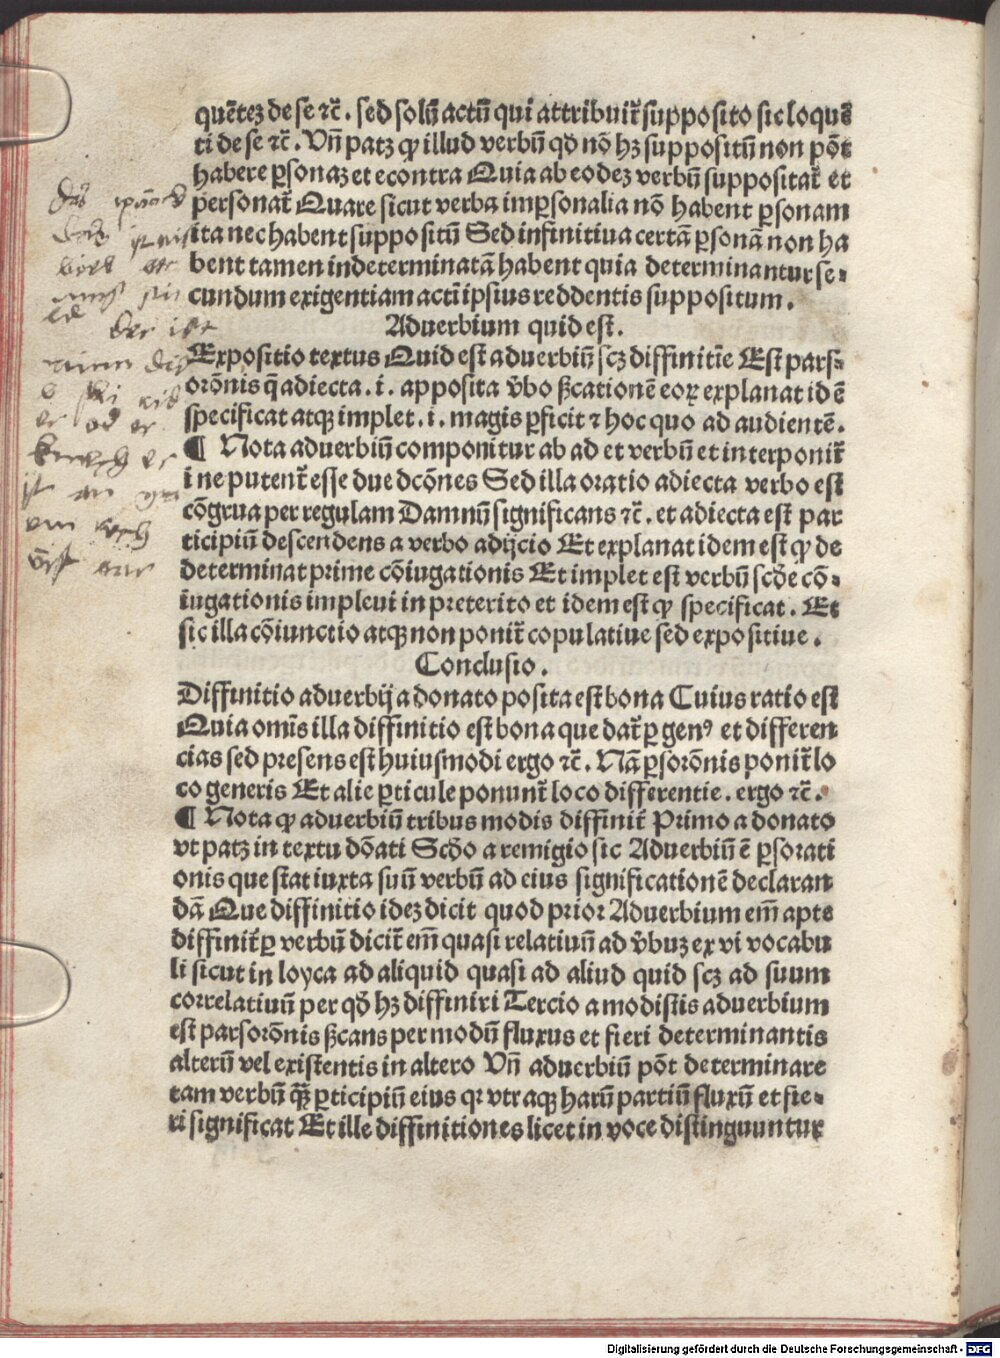 quētez de se ⁊c̄. sed solū actū qui attribuit̄ supposito sic loquē
ti de se ⁊c̄. Vn̄ patz ꝙ illud verbū qd̄ nō hz suppositū non pōt
habere ꝑsonaz et econtra Quia ab eodez verbū suppositat̄ et
personat̄ Quare sicut verba imꝑsonalia nō habent ꝑsonam
ita nec habent suppositū Sed infinitiua certā ꝑsonā non ha
bent tamen indeterminatā habent quia determinantur se-
cundum exigentiam actū ipsius reddentis suppositum.
Aduerbium quid est.
Expositio textus Quid est aduerbiū scz diffinitiē Est pars
orōnis q̄ adiecta .i. apposita v̄bo ßcationē eoꝝ explanat id ē
specificat atqꝫ implet .i. magis ꝑficit ⁊ hoc quo ad audientē.
¶ Nota aduerbiū componitur ab ad et verbū et interponit̄
i ne putent̄ esse due dcōnes Sed illa oratio adiecta verbo est
cōgrua per regulam Damnū significans ⁊c̄. et adiecta est par
ticipiū descendens a verbo adijcio Et explanat idem est ꝙ de
determinat prime cōiugationis Et implet est verbū scd̄e cō-
iugationis impleui in preterito et idem est ꝙ specificat. Et
sic illa cōiunctio atqꝫ non ponit̄ copulatiue sed expositiue.
Conclusio.
Diffinitio aduerbij a donato posita est bona Cuius ratio est
Quia om̄is illa diffinitio est bona que dat̄ ꝑ genꝰ et differen
cias sed presens est huiusmodi ergo ⁊c̄. Nā ꝑs orōnis ponit̄ lo
co generis Et alie ꝑticule ponunt̄ loco differentie. ergo ⁊c̄.
¶ Nota ꝙ aduerbiū tribus modis diffinit̄ Primo a donato
vt patz in textu dōati Scd̄o a remigio sic Aduerbiū ē ꝑs orati
onis que stat iuxta suū verbū ad eius significationē declaran
dā Que diffinitio idez dicit quod prior Aduerbium em̄ apte
diffinit̄ ꝑ verbū dicit̄ em̄ quasi relatiuū ad v̄buz ex vi vocabu
li sicut in loyca ad aliquid quasi ad aliud quid scz ad suum
correlatiuū per qd̄ hz diffiniri Tercio a modistis aduerbium
est pars orōnis ßcans per modū fluxus et fieri determinantis
alterū vel existentis in altero Vn̄ aduerbiū pōt determinare
tam verbū q̄ꝫ ꝑticipiū eius qꝛ vtraqꝫ harū partiū fluxū et fie-
ri significat Et ille diffinitiones licet in voce distinguuntur
Digitalisierung gefördert durch die Deutsche Forschungsgemeinschaft - DFG